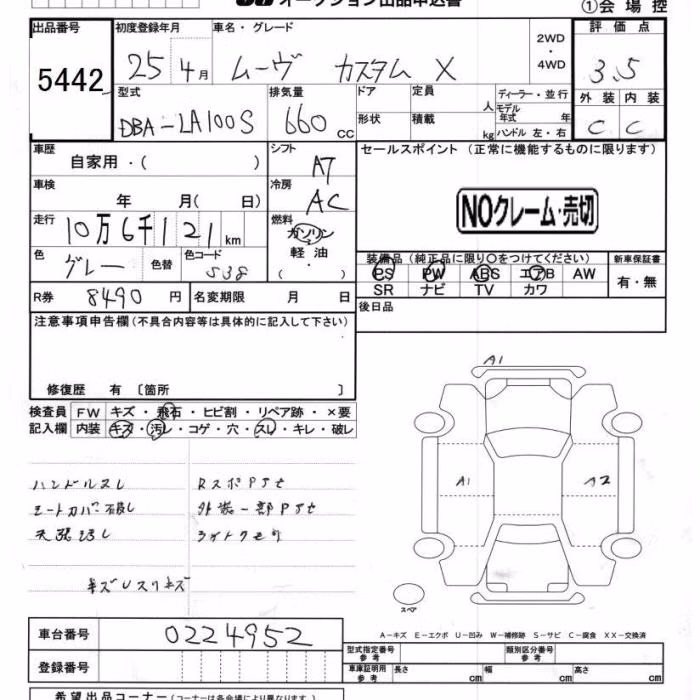 オークション出品申込書
①会場控
出品番号 5442
初度登録年月 25 4月
車名・グレード ムーヴ カスタム X
2WD・4WD
評価点 3.5
型式 DBA-LA100S
排気量 660 cc
ドア 形状
定員 人 積載 kg
ディーラー・並行
モデル年式 年
ハンドル 左・右
外装 C 内装 C
車歴 自家用・( )
シフト AT
セールスポイント (正常に機能するものに限ります)
NOクレーム・売切
車検 年 月( 日)
冷房 AC
走行 10万6千121km
燃料 ガソリン 軽油 ( )
色 グレー 色替 色コード S38
装備品(純正品に限り○をつけてください) 新車保証書
PS PW ABS エアB AW 有・無
SR ナビ TV カワ
R券 8490 円 名変期限 月 日
後日品
注意事項申告欄(不具合内容等は具体的に記入して下さい)
修復歴 有 〔箇所 〕
検査員記入欄
FW キズ・飛石・ヒビ割・リペア跡・×要
内装 キズ・汚レ・コゲ・穴・スレ・キレ・破レ
ハンドルスレ
シートカバー破レ 外装一部
天張汚レ ライトクモリ
キズUスリキズ
A1
A1 A2
スペア
A-キズ E-エクボ U-凹み W-補修跡 S-サビ C-腐食 XX-交換済
車台番号 0224952
登録番号
型式指定番号 参考 類別区分番号 参考
車庫証明用 参考 長さ cm 幅 cm 高さ cm
希望出品コーナー(コーナーは各会場により異なります)